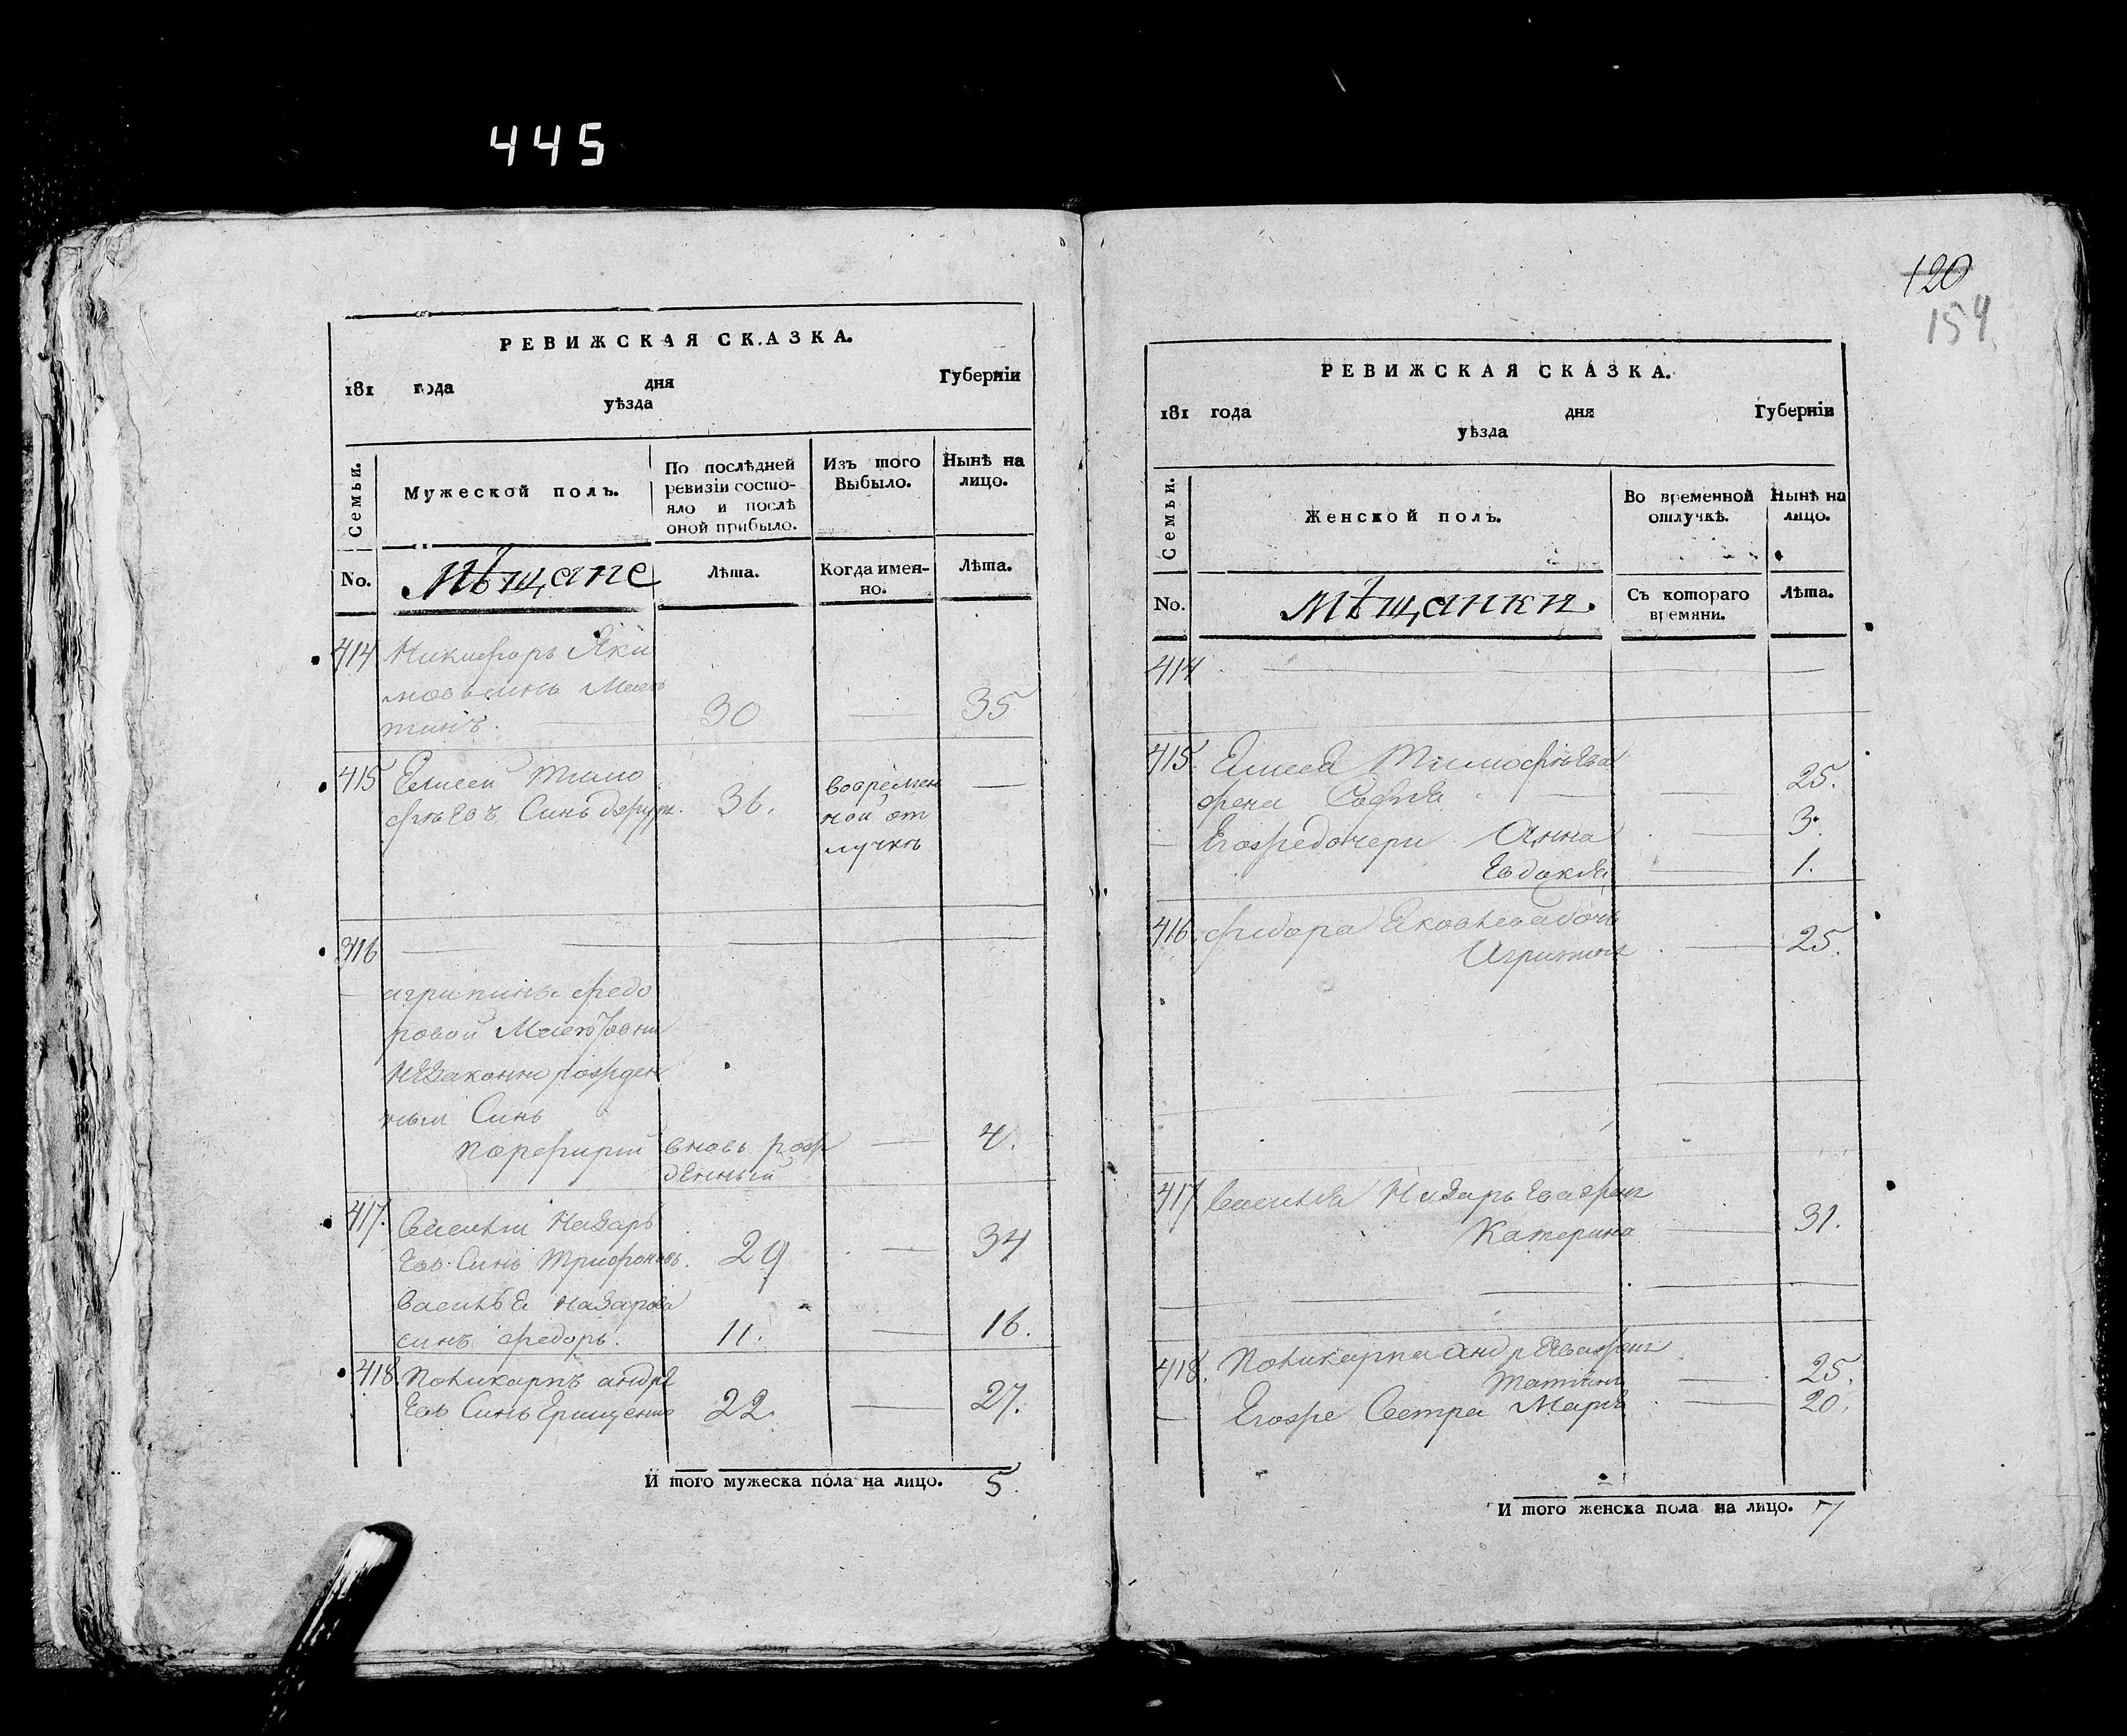 445
РЕВИЖСКАЯ СКАЗКА.
181 года дня Губерніи
уѣзда
Семьи.
Мужеской полъ.
По послѣдней ревизіи состо-
яло и послѣ
оной прибыло.
Изъ того
Выбыло.
Нынѣ на
лицо.
No.
Мѣщане
Лѣта.
Когда имен-
но.
Лѣта.
414 Никифоръ Яки
мовъ синъ
30 — 35
415 Елисей Тимо
фѣевъ Синъ
36.
вовремен
ной от
лучкѣ
—
416 —
агрипины федо
ровой
незаконно рожден
ныи Синъ
порфирий вновь рож
денный — 4.
417. Василий Назарь
евъ Синъ Трифоновъ. 29 — 34
Василья Назарова
синъ федоръ. 11. — 16.
418. Поликарпъ андре
евъ Синъ Ерищенко 22 — 27.
И того мужеска пола на лицо. 5.
120
154
РЕВИЖСКАЯ СКАЗКА.
181 года дня Губерніи
уѣзда
Семьи.
Женской полъ.
Во временной
отлучкѣ.
Нынѣ на
лицо.
No.
Мѣщанки.
Съ котораго
времяни.
Лѣта.
414 —
415. Елисея Тимофѣева
жена Софья — 25.
Егожедочери Анна — 3.
Евдокия — 1.
416. федора дочь
Агрипина — 25.
417 Василья Назарьева жена
Катерина — 31.
418. Поликарпа андреева жена
Татияна — 25.
— Егоже Сестра Марья — 20.
И того женска пола на лицо. 7